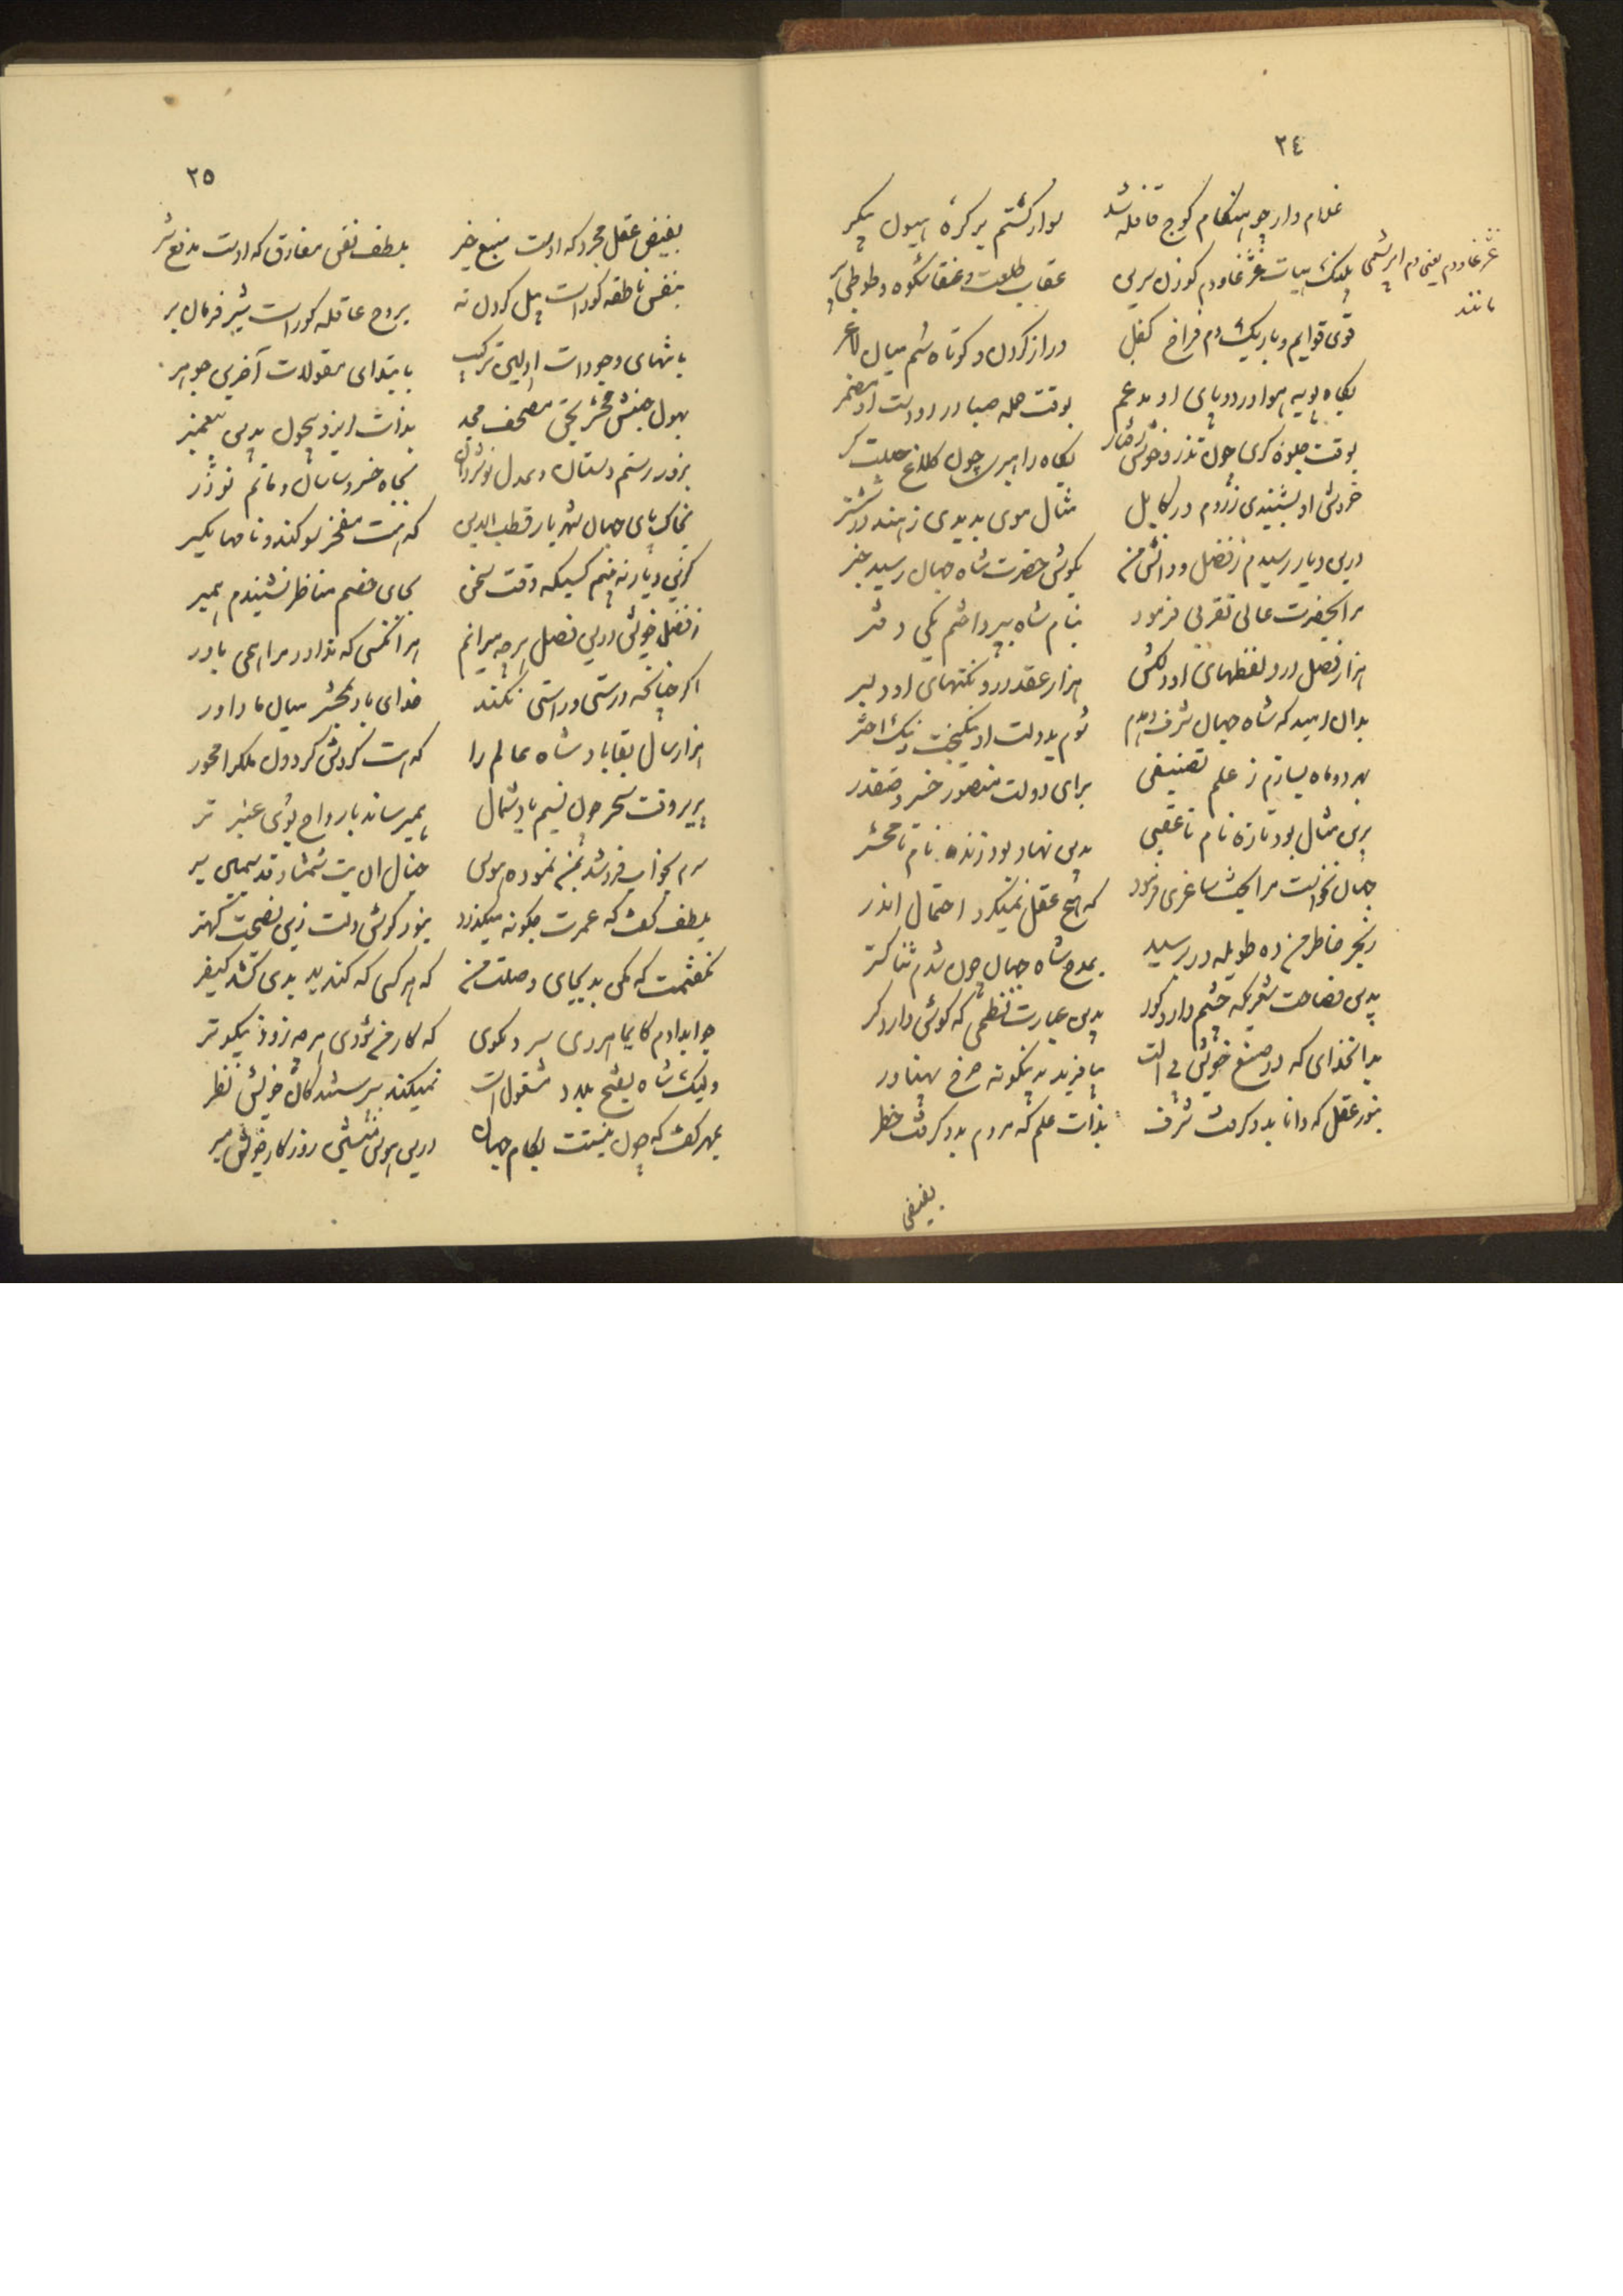 ٢٤
غلام وار چو هنگام کوچ قافله شد سوار گشتم بر کره هیون پیکر
غژغاودم یعنی دم ابریشمی مانند
پلنگ هیأت غژغاودم گوزن سرین عقاب طلعت و عنقا شکوه و طوطی پر
قوی قوایم و باریک دم فراخ کفل دراز گردن و کوتاه سم میان لاغر
بگاه پویه هوا در دو پای او مدغم بوقت حمله صبا در دو دست او مضمر
بوقت جلوه گری چون تذرو خوش رفتار بگاه راهبری چون کلاغ حیلت گر
خروش او بشنیدی ز روم در کابل مثال موی بدیدی ز هند در ششتر
درین دیار رسیدم ز فضل و دانش من بگوش حضرت شاه جهان رسید خبر
مرا بحضرت عالی تقربی فرمود بنام شاه بپرداختم یکی دفتر
هزار فصل درو لفظهای او دلکش هزار عقد درو نکتهای او دلبر
بدان امید که شاه جهان شرف دهدم شوم بدولت او نیکبخت نیک اختر
بهر دو ماه بسازم ز علم تصنیفی برای دولت منصور خسرو صفدر
برین مثال بود تازه نام تا عقبی بدین نهاد بود زنده نام تا محشر
جهان نخواست مرا بخت شاعری فرمود که هیچ عقل نمیکرد احتمال ایدر
ز بحر خاطر من ده طویله در برسید بمدح شاه جهان چون شدم ثنا گستر
بدین فصاحت شعریکه چشم دارد کور بدین عبارت نظمی که گوش دارد کر
بدانخدای که در صنع خویش بی آلت بیافرید بدینگونه چرخ پهناور
بنور عقل که دانا بدو گرفت شرف بذات علم که مردم بدو گرفت خطر
بفیض
٢٥
بفیض عقل مجرد که اوست منبع خیر بلطف نفس مفارق که اوست مدفع شر
بنفس ناطقه کوراست پیل گردن نه بروح عاقله کوراست شیر فرمان بر
بانتهای وجودات اولین ترکیب بابتدای مقولات آخرین جوهر
بهول جنبش محشر بحق مصحف مجد بذات ایزد بیچون بدین پیغمبر
بزور رستم دستان و بعدل نوشروان بجاه خسرو ساسان و ماتم نوذر
بخاک پای جهان شهریار قطب الدین که هست مفخر سوگند و تا صهابکیر
گزین دیار نه منم کسیکه وقت سخن بجای خصم مناظر نشیندم همبر
ز فضل خویش درین فصل هرچه میرانم هر آنکسی که ندارد مرا همی باور
اگر چنانکه درستی و راستی نکند خدای باد بمحشر میان ما داور
هزار سال بقا باد شاه عالم را که هست گردش گردون ملکرا محور
پریر وقت سحر چون نسیم باد شمال همیرساند بارواح بوی عنبر تر
سرم بخواب فرو شد بمن نموده هوس خیال آن بت شمشاد قد سیمین بر
بلطف گفت که عمرت چگونه میگذرد بنزد گوش دلت زین نصیحت بهتر
نگفتمت که مکن بد بجای وصلت من که هر کسی که کند بد بدی کشد کیفر
جوابدادم کایماهروی سرو نکوی که کار من شودی هرچه زود نیکوتر
ولیک شاه بفتح بلاد مشغولست نمیکند بپرستندگان خویش نظر
بمهر گفت که چون نیستت بکام جهان درین هوس منشین روزگار خویش مبر